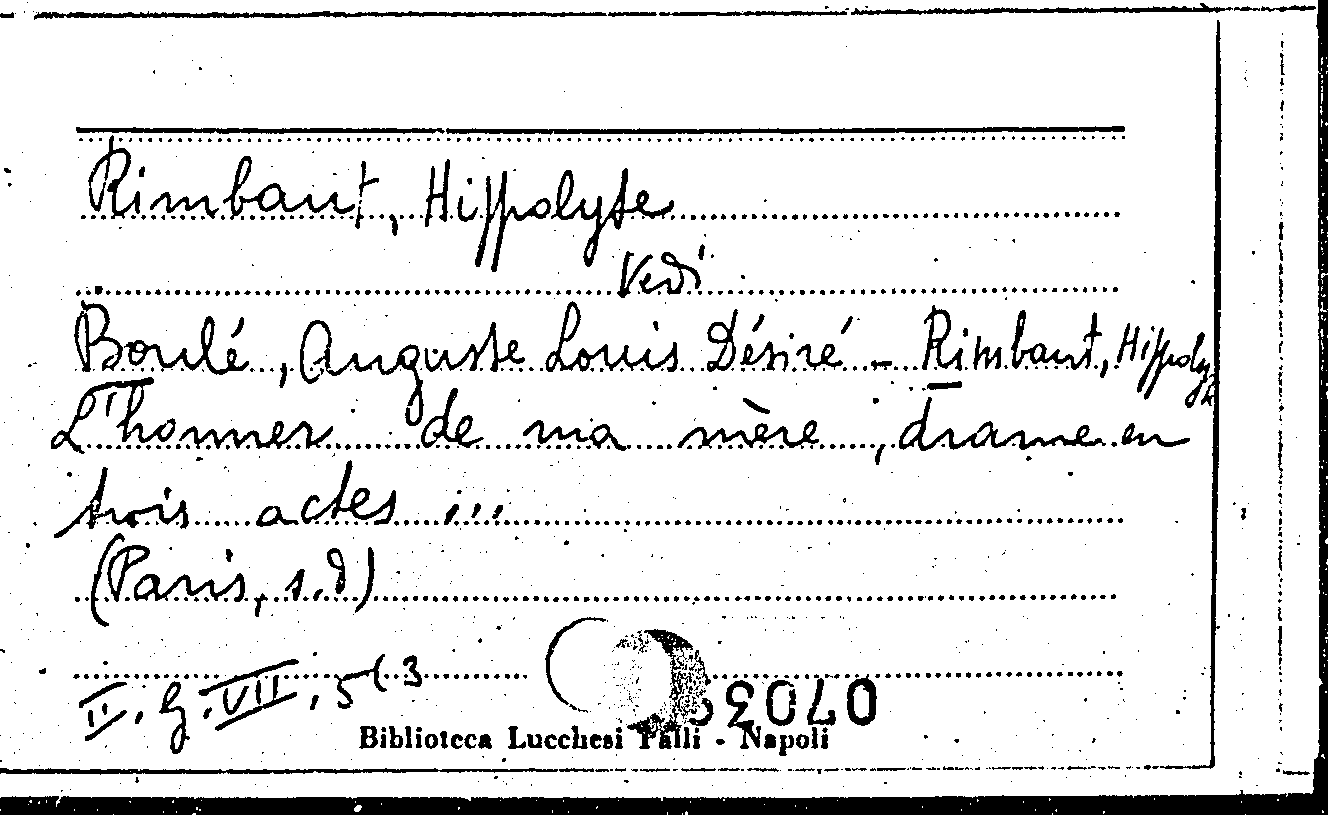 Rimbaut, Hippolyte
Vedi
Boulé, Auguste Louis Désiré - Rimbaut, Hippolyte
L'honneur de ma mère, drame en
trois actes ...
(Paris, s.d)
II. G. VII, 5(3
Biblioteca Lucchesi Palli - Napoli